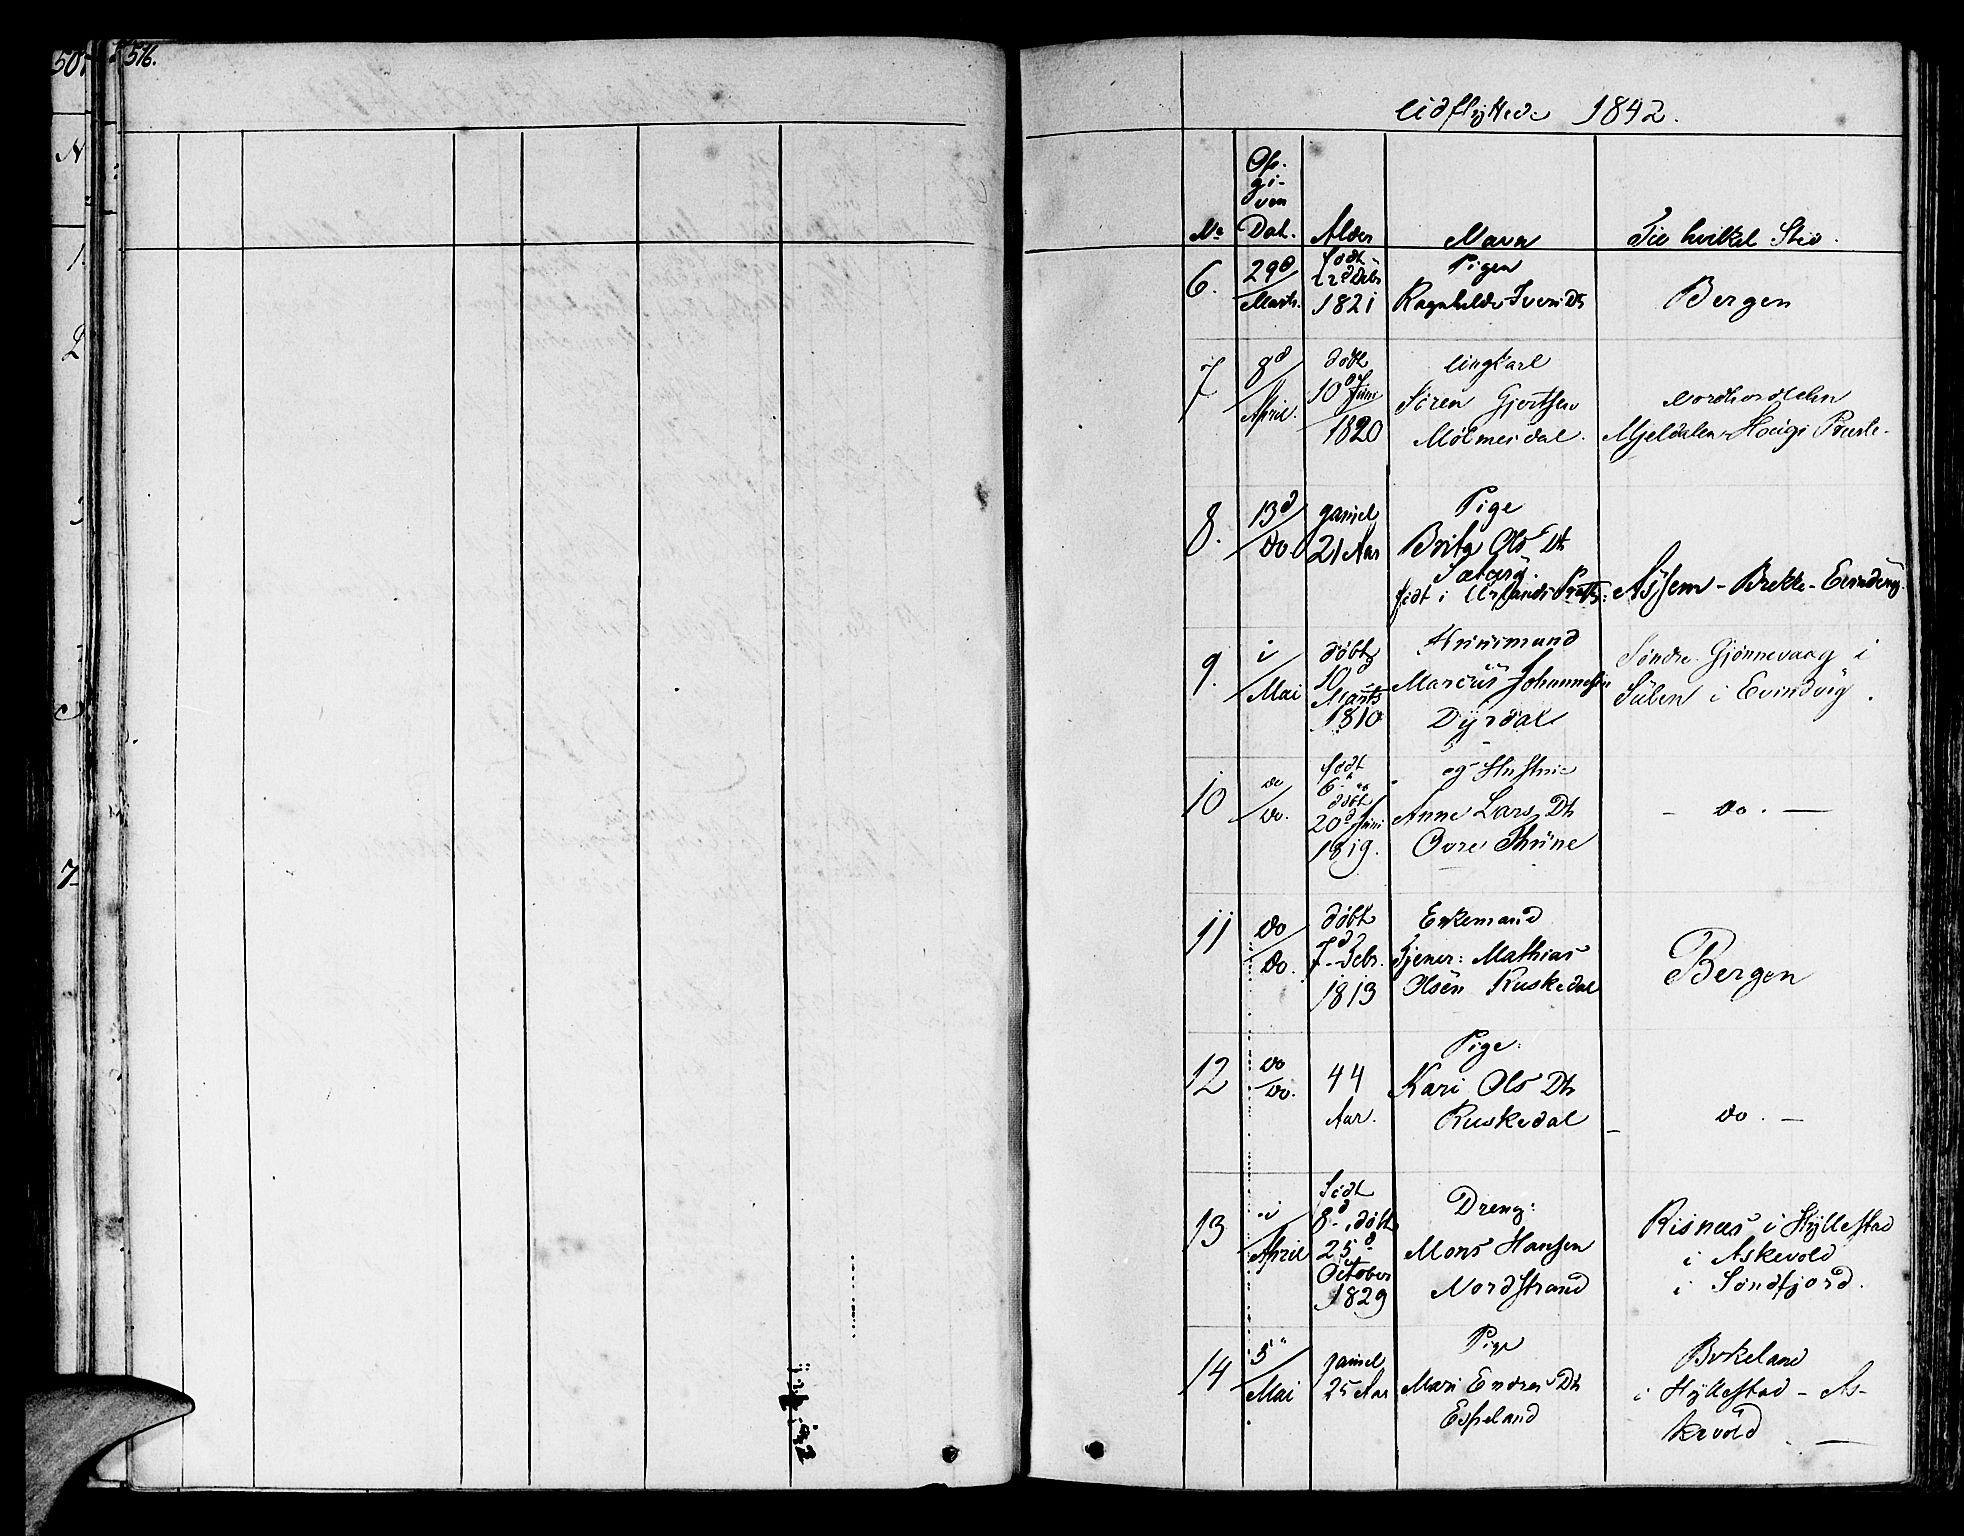 50
516.
N
1
2
3
7
Udflyttede 1842.
Op-
gi-
ven
No Dat. Alder Navn Til hvilket Sted.
6. 29d/Marts. født 1821 Pigen
Ragnhilde Ivers Dtr Bergen
7 8d/April. døbt 10d Juni 1820 Ungkarl
Sören Gjertsen Nordhordlehn
Mølmesdal. Mjeldalen Hougs Præste-
8. 13d/do. gamel 21 Aar Pige
Brita Ols Dtr
Sæterg.
født i Urlands Præstg: Assem - Brekke - Evindvig.
9. i/Mai døbt 10d Marts 1810 Huusmand
Marcus Johannesen Søndre Gjønnevaag i
Dyrdal Sulen i Evindvig.
10 do/do. født 6- døbt 20d Juni 1819. og Hustrue
Anne Lars Dtr - do. -
Øvre Thüne
11 do/do. døbt 7d Febr. 1813 Enkemand
Tjener: Mathias
Olsen Ruskedal Bergen
12 do/do. 44 Aar. Pige:
Kari Ols Dtr
Ruskedal - do. -
13 i/April Født 8d, døbt 25d October 1829 Dreng:
Mons Hansen
Nordstrand Risnæs i Hyllestad
i Askevold
i Søndfjord.
14 5/Mai gamel 25 Aar Pige
Mari Endres Dtr
Espeland Birkeland
i Hyllestad - As-
kevold -